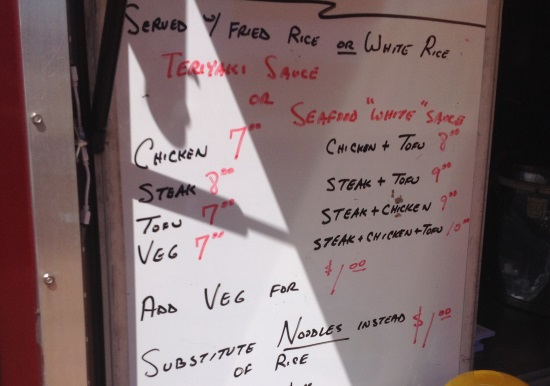 SERVED W/ FRIED RICE OR WHITE RICE
TERIYAKI SAUCE
OR
SEAFOOD "WHITE" SAUCE
CHICKEN 7.00
STEAK 8.00
TOFU 7.00
VEG 7.00
CHICKEN + TOFU 8.00
STEAK + TOFU 9.00
STEAK + CHICKEN 9.00
STEAK + CHICKEN + TOFU 10.00
ADD VEG FOR $1.00
SUBSTITUTE NOODLES INSTEAD $1.00
OF RICE